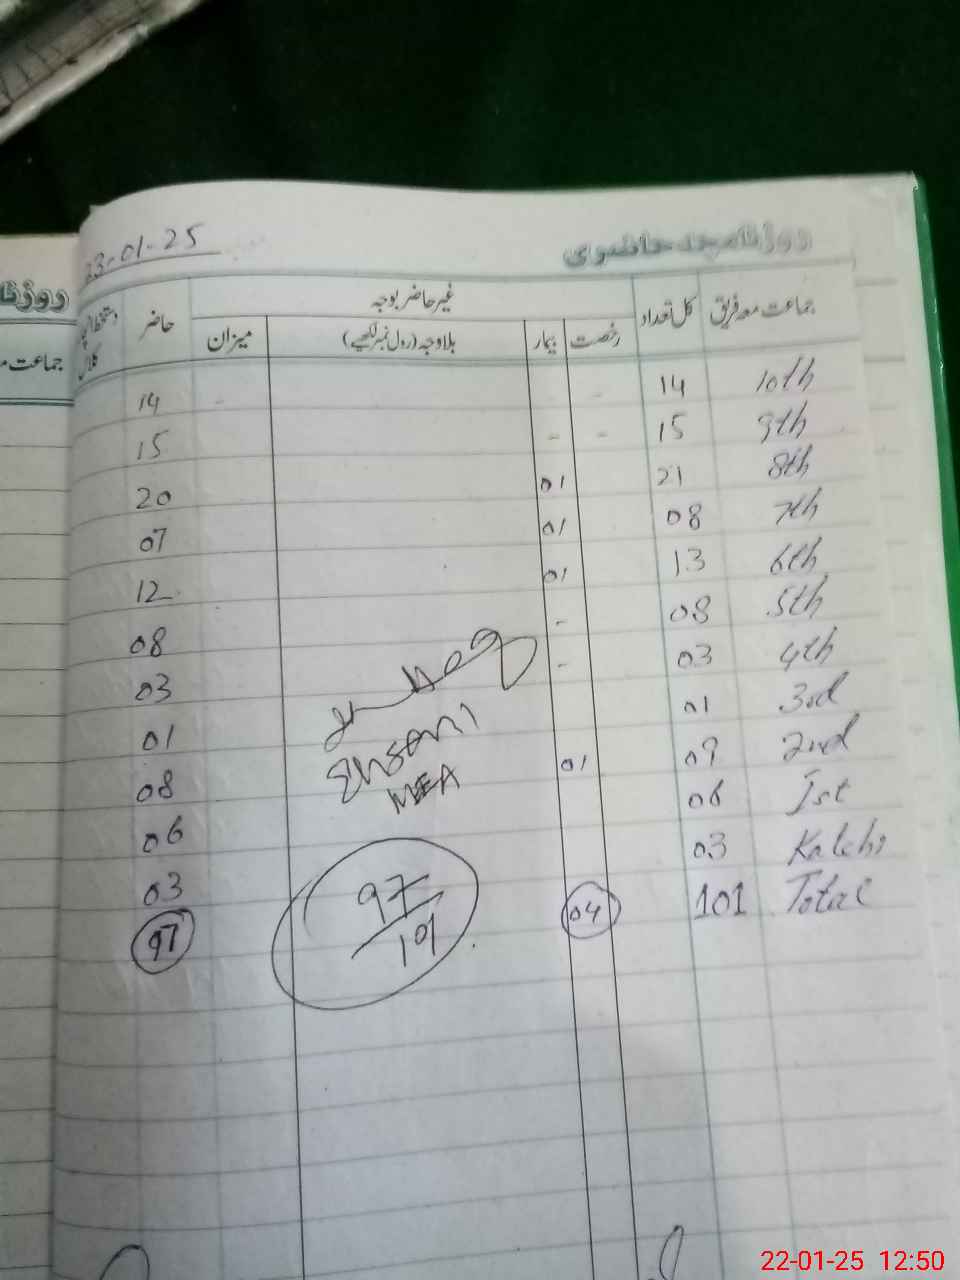 23-01-25
روزنامچہ حاضری
جماعت معہ فریق کل تعداد غیر حاضر بوجہ حاضر
رخصت بیمار بلاوجہ (رول نمبر لکھیے) میزان
کلاس
روزنا
جماعت م
10th 14 - - 14
9th 15 - - 15
8th 21 01 20
7th 08 01 07
6th 13 01 12
5th 08 - 08
4th 03 - 03
3rd 01 01
2nd 09 01 08
Ist 06 06
Kalchi 03 03
Total 101 04 97
Ehsani
MEA
97
101
22-01-25 12:50